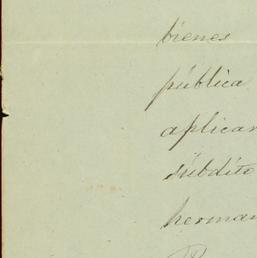 bienes
pública
aplicar
súbdito
herman